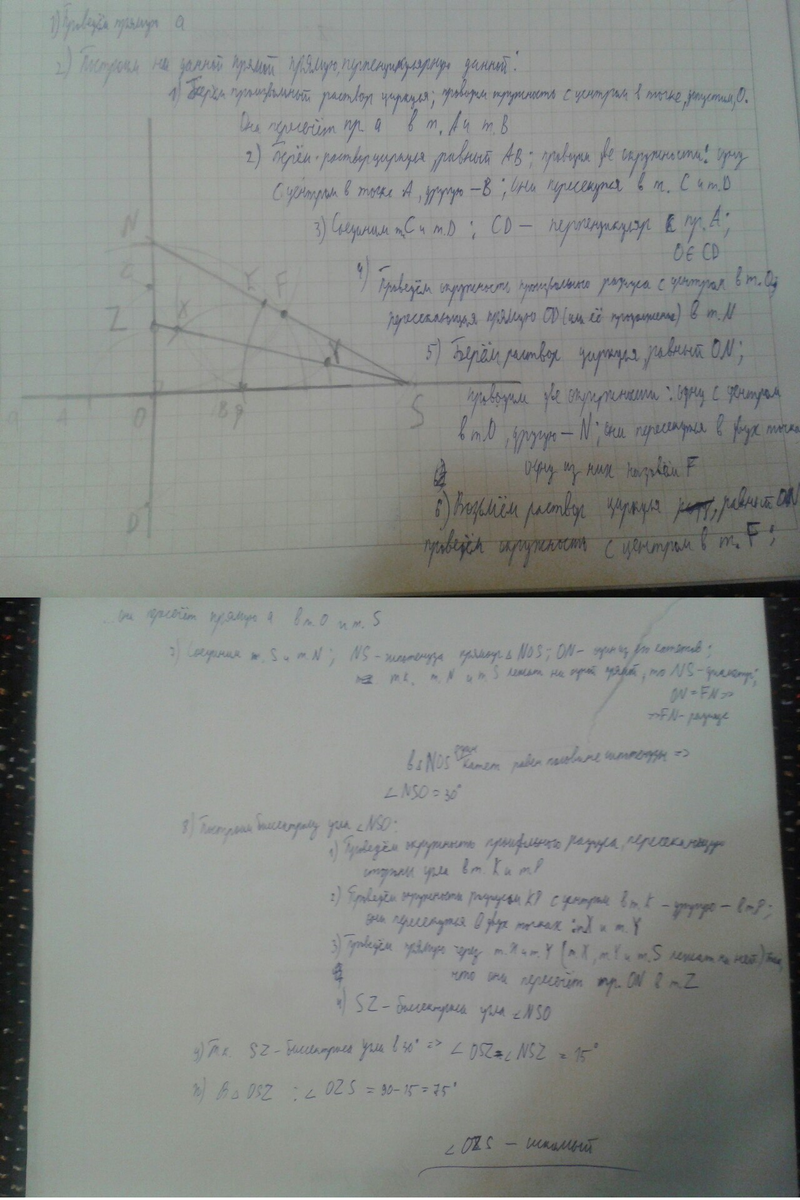 1) Проведём прямую a
2) Построим на данной прямой прямую, перпендикулярную данной:
1) Берём произвольный раствор циркуля; проводим окружность с центром в точке, допустим, O.
Она пересечёт пр. a в т. A и т. B
2) Берём раствор циркуля, равный AB; проводим две окружности: одну
с центром в точке A, другую – B; они пересекутся в т. C и т. D
3) Соединим т. C и т. D; CD — перпендикуляр к пр. A;
O∈CD
4) Проведём окружность произвольного радиуса с центром в т. O,
пересекающую прямую CD (или её продолжение) в т. N
5) Берём раствор циркуля, равный ON;
проводим две окружности: одну с центром
в т. O, другую — N; они пересекутся в двух точках
одну из них назовём F
6) Возьмём раствор циркуля, равный ON
проведём окружность с центром в т. F;
N
C
Z
X
F
Y
O
S
D
она пересечёт прямую a в т. O и т. S
7) Соединим т. S и т. N; NS – гипотенуза прямоуг. △ NOS; ON – один из его катетов;
т.к. т. N и т. S лежат на одной прямой, то NS – диаметр;
ON = FN =>
=> FN – радиус
в △NOS один катет равен половине гипотенузы =>
∠NSO = 30°
8) Построим биссектрису угла ∠NSO:
1) Проведём окружность произвольного радиуса, пересекающую
стороны угла в т. K и т. P
2) Проведём окружности радиусом KP с центром в т. K – другую – в т. P;
они пересекутся в двух точках: т. X и т. Y
3) Проведём прямую через т. X и т. Y (т. X, т. Y и т. S лежат на ней) так,
что она пересечёт пр. ON в т. Z
4) SZ – биссектриса угла ∠NSO
9) Т.к. SZ – биссектриса угла в 30° => ∠OSZ = ∠NSZ = 15°
10) В △ OSZ : ∠ OZS = 90-15 = 75°
∠OZS – искомый